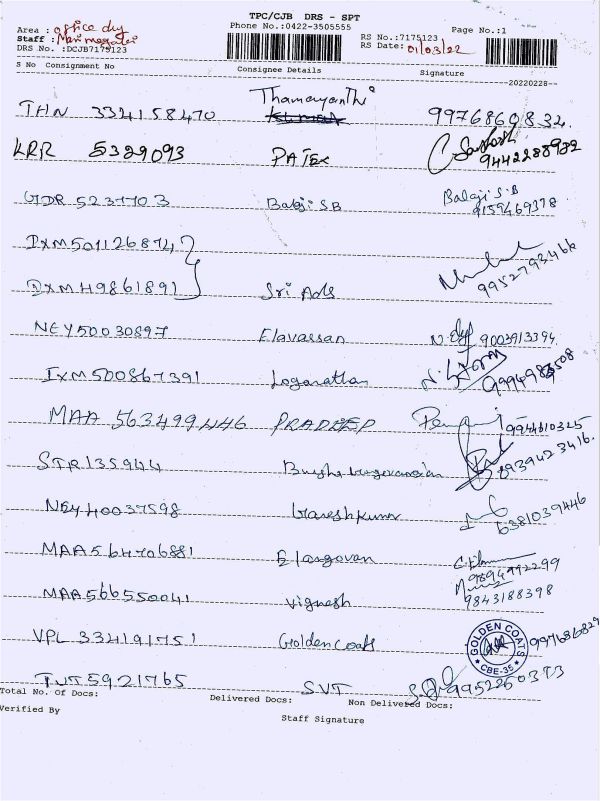 TPC/CJB DRS - SPT
Area : office dly Phone No.:0422-3505555 Page No.:1
Staff : RS No.:7175123
DRS No. :DCJB7175123 RS Date: 01/03/22
S No Consignment No Consignee Details Signature
--20220228--
THN 334158470 Thamayanthi 9976860832.
KRR 5329093 PATEX Santosh 9442288982
GDR 5237703 Balaji SB Balaji S.B 9159469378
IXM501126874
IXM49861891 Sri Ads 9952793466
NEY50030897 Elavassan 9003913394
IXM500867391 Loganathan 9994983508
MAA 563499446 PRADEEP 9944610325
STR135944 8939423416.
NEY40037598 Ganeshkumar 6381039446
MAA564706881 Elangovan 9894992299
MAA566550041 Vignesh 9843188398
VPL 334191751 Golden Coats GOLDEN COATS CBE-35 997686829
TNT5921765 SVT 9952260373
Total No. Of Docs: Delivered Docs: Non Delivered Docs:
Verified By Staff Signature